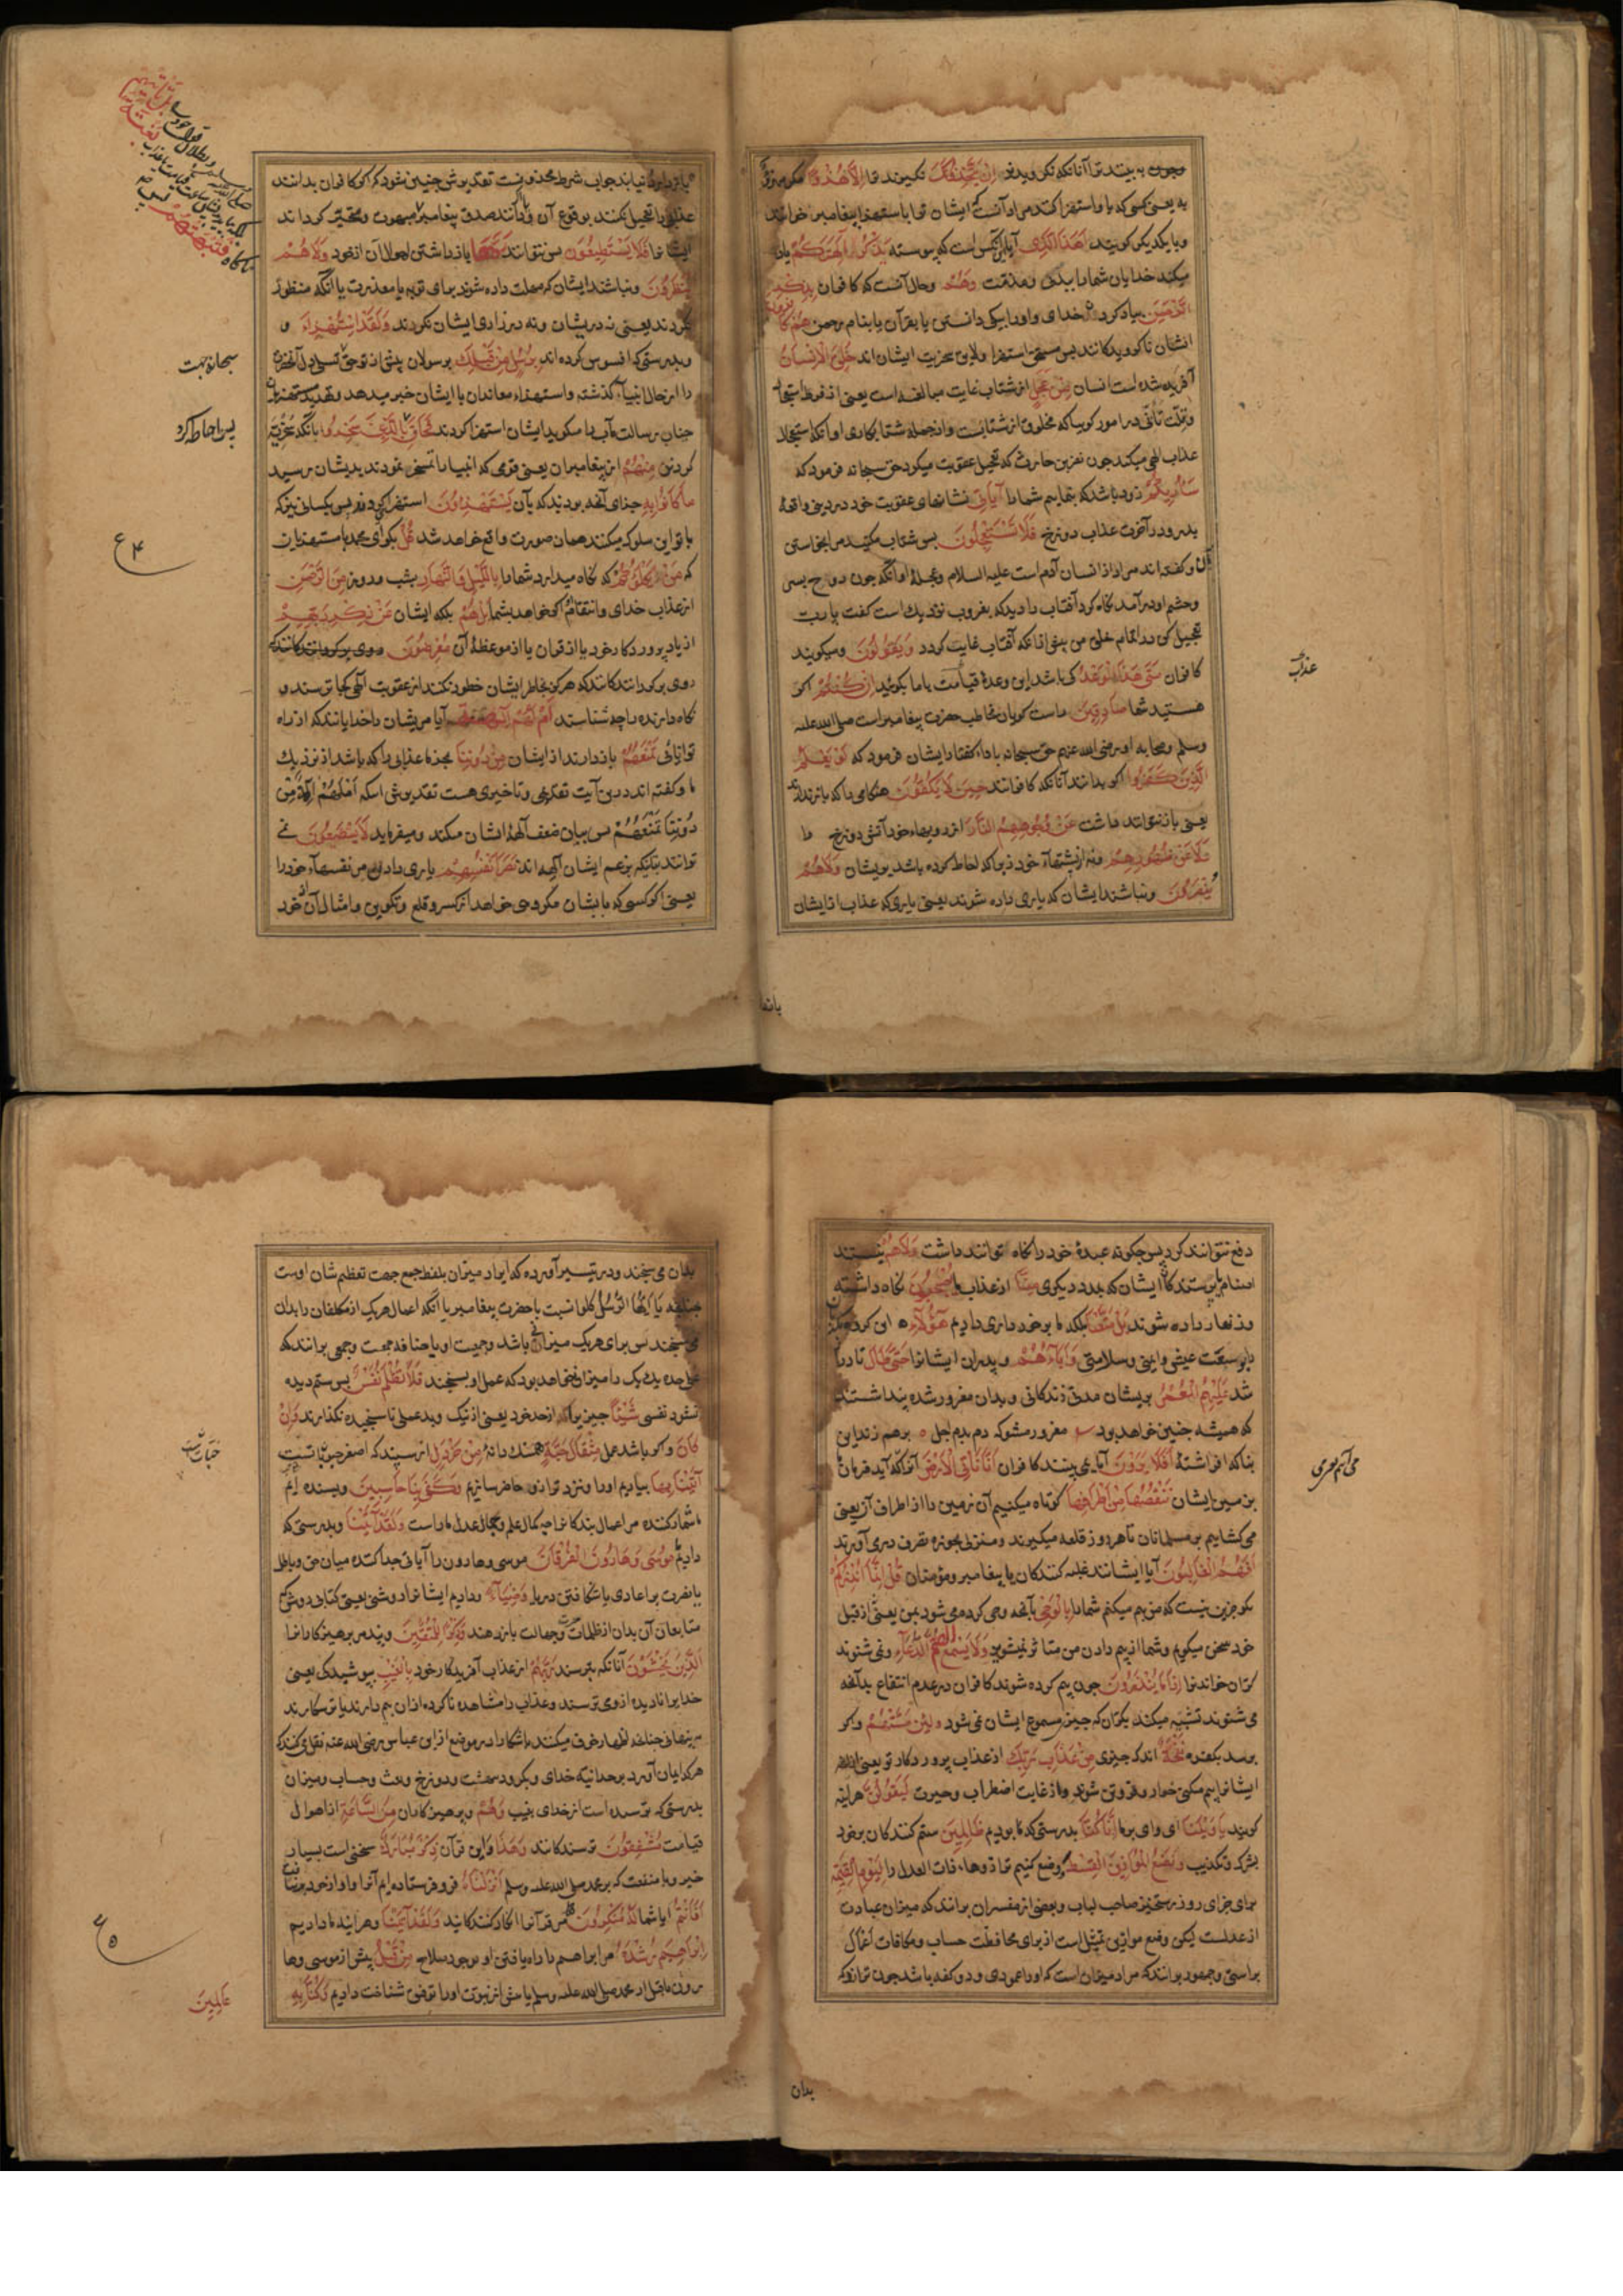 وچون به بینند ترا آنانکه نگرویدند اِنْ يَتَّخِذُونَكَ نگیرند ترا اِلَّا هُزُوًا مگر مهزو
به یعنی کسی که با او استهزا کنند مراد آنست که ایشان ترا باستهزا پیغامبر خوانند
وبا یکدیگر گویند اَهَذَا الَّذِی آیا این کس است که پیوسته يَذْكُرُ آلِهَتَكُمْ یاد
میکند خدایان شما را ببدی ومذمت وَهُمْ وحال آنست که کافران بِذِكْرِ
الرَّحْمٰنِ بیاد کرد خدای واو را بیکی دانستن یا بقرآن یا بنام رحمن هُمْ كَافِرُونَ
ایشان ناگرویدگانند پس مستحق استهزا ولایق سخریت ایشان اند خُلِقَ الْاِنْسَانُ
آفریده شده است انسان مِنْ عَجَلٍ از شتاب غایت مبالغه است یعنی از فرط استعجال
وقلت تأنی در امور گوییا که مخلوق از شتابست واز جمله شتابکاری او آنکه استعجال
عذاب الهی میکند چون نضر بن حارث که تعجیل عقوبت میکرد حق سبحانه فرمود که
سَاُرِيكُمْ زود باشد که بنمایم شما را آيَاتِي نشانهای عقوبت خود در دنیا واقعهٔ
بدر ودر آخرت عذاب دوزخ فَلَا تَسْتَعْجِلُونَ پس شتاب مکنید مرا بخواستن
آن وگفته اند مراد از انسان آدم است علیه السلام وعجلهٔ او آنکه چون روح بسر
وچشم او در آمد نگاه کرد آفتاب را دید که بغروب نزدیک است گفت یا رب
تعجیل کن در اتمام خلق من پیش از آنکه آفتاب غایب گردد وَيَقُولُونَ ومیگویند
کافران مَتَى هَذَا الْوَعْدُ کی باشد این وعدهٔ قیامت با ما بگوئید اِنْ كُنْتُمْ اگر
هستید شما صَادِقِينَ راست گویان مخاطب حضرت پیغامبر است صلی الله علیه
وسلم وصحابه او رضی الله عنهم حق سبحانه باداء گفتار ایشان فرمود که لَوْ يَعْلَمُ
الَّذِينَ كَفَرُوا اگر بدانند آنانکه کافرانند حِينَ لَا يَكُفُّونَ هنگامی را که باز ندارند
یعنی باز نتوانند داشت عَنْ وُجُوهِهِمُ النَّارَ از رویهاء خود آتش دوزخ را
وَلَا عَنْ ظُهُورِهِمْ ونه از پشتهاء خود زیرا که احاطه کرده باشد بر ایشان وَلَا هُمْ
يُنْصَرُونَ ونباشند ایشان که یاری داده شوند یعنی یاری که عذاب از ایشان
عذاب
یا بتوا
باز دارد نیابند جواب شرط محذوفست تقدیرش چنین شود که اگر کافران بدانند
ایشانرا فَلَا يَسْتَطِيعُونَ پس نتوانند رَدَّهَا باز داشتن اهوال آن از خود وَلَا هُمْ
يُنْظَرُونَ ونباشند ایشان که مهلت داده شوند برای توبه یا معذرت یا آنکه منظور
نگردند یعنی نه در ایشان ونه در زاری ایشان نگرند وَلَقَدِ اسْتُهْزِئَ و
وبدرستی که افسوس کرده اند بِرُسُلٍ مِنْ قَبْلِكَ برسولان پیش از تو حق تسلی دل آنحضرت
را از حال انبیاء گذشته واستهزاء معاندان با ایشان خبر میدهد
فَحَاقَ بِالَّذِينَ سَخِرُوا بآنانکه سخریت
کردند مِنْهُمْ از پیغامبران یعنی قومی که انبیا را تمسخر نمودند بدیشان رسید
مَا كَانُوا بِهِ جزای آنچه بودند که بآن يَسْتَهْزِؤُنَ استهزا کردند پس کسانی نیز که
با تو این سلوک میکنند همان صورت واقع خواهد شد قُلْ بگو ای محمد با مستهزیان
که مَنْ يَكْلَؤُكُمْ که نگاه میدارد شما را بِاللَّيْلِ وَالنَّهَارِ بشب وروز مِنَ الرَّحْمٰنِ
از عذاب خدای وانتقام اگر خواهد بشما بَلْ هُمْ بلکه ایشان عَنْ ذِكْرِ رَبِّهِمْ
از یاد پروردگار خود یا از قرآن یا از موعظهٔ آن مُعْرِضُونَ
روی برگردانندگانند که هرگز بخاطر ایشان خطور نکند از عقوبت الهی کجا ترسند و
نگاه دارنده را چه شناسند اَمْ لَهُمْ آلِهَةٌ آیا مر ایشان را خدایانند که از راه
توانائی تَمْنَعُهُمْ باز دارند از ایشان مِنْ دُونِنَا بجز ما عذابی را که باشد از نزدیک
ما وگفته اند درین آیت تقدیمی وتاخیری هست تقدیرش اینکه اَمْ لَهُمْ آلِهَةٌ مِنْ
دُونِنَا تَمْنَعُهُمْ پس بیان ضعف آلههٔ ایشان میکند ومیفرماید لَا يَسْتَطِيعُونَ نمی
توانند بتان که بزعم ایشان آلهه اند نَصْرَ اَنْفُسِهِمْ یاری دادن مر نفسهاء خود را
یعنی اگر کسی که بایشان مکروهی خواهد از کسر وقلع وتکوین وامثال آن از خود
سبحانه بجهت
پس احاطه کرد
بَلْ تَأْتِيهِمْ
بَغْتَةً
فَتَبْهَتُهُمْ
ع ۴
دفع نتوانند کرد پس چگونه عبدهٔ خود را نگاه توانند داشت وَلَا هُمْ نیستند
اصنام یا پرستندگان ایشان که بمدد دیگری مِنَّا از عذاب ما يُصْحَبُونَ نگاه داشته
وزنهار داده شوند بَلْ مَتَّعْنَا بلکه ما برخورداری دادیم هٰؤُلَاءِ این گروه را
وَآبَاءَهُمْ وپدران ایشانرا حَتَّى طَالَ تا دراز
شد عَلَيْهِمُ الْعُمُرُ بریشان مدت زندگانی وبدان مغرور شده پنداشتند
که همیشه چنین خواهد بود مغرور مشو که دم بدم اجل برهم زند این
بنا که افراشتهٔ اَفَلَا يَرَوْنَ آیا نمی بینند کافران اَنَّا نَأْتِي الْاَرْضَ آنرا که آید فرمان ما
بزمین ایشان نَنْقُصُهَا مِنْ اَطْرَافِهَا کوتاه میکنیم آن زمین را از اطراف آن یعنی
می گشاییم بر مسلمانان تا هر روز قلعه میگیرند ومنزلی بحوزه تصرف در می آورند
اَفَهُمُ الْغَالِبُونَ آیا ایشانند غلبه کنندگان یا پیغامبر ومؤمنان قُلْ اِنَّمَا اُنْذِرُكُمْ
بگو جز این نیست که من بیم میکنم شما را بِالْوَحْيِ بآنچه وحی کرده می شود بمن یعنی از قبل
خود سخن نمیگویم وشما از بیم دادن من متاثر نمیشوید وَلَا يَسْمَعُ الصُّمُّ الدُّعَاءَ ونمی شنوند
کران خواندن را اِذَا مَا يُنْذَرُونَ چون بیم کرده شوند کافران در عدم انتفاع بدآنچه
می شنوند تشبیه میکند بکران که چیزی مسموع ایشان نمی شود وَلَئِنْ مَسَّتْهُمْ واگر
برسد بکفره نَفْحَةٌ اندک چیزی مِنْ عَذَابِ رَبِّكَ از عذاب پروردگار تو یعنی
واز غایت اضطراب وحیرت لَيَقُولُنَّ هر اینه
گویند يَا وَيْلَنَا ای وای بر ما اِنَّا كُنَّا بدرستی که ما بودیم ظَالِمِينَ ستم کنندگان بر خود
بشرک وتکذیب وَنَضَعُ الْمَوَازِينَ الْقِسْطَ ووضع کنیم ترازوهاء ذات العدل را لِيَوْمِ الْقِيٰمَةِ
برای جزای روز رستخیز صاحب لباب وبعضی از مفسران برانند که میزان عبارت
از عدلست لیکن وضع موازین تمثیل است از برای محافظت حساب ومکافات اعمال
براستی وجمهور برانند که مراد میزان است که او را عمودی ودو کفه باشد چون ترازو که
بدان
بدان می سنجند ودر تیسیر آورده که ایراد میزان بلفظ جمع جهت تعظیم شان اوست
چنانچه يَا اَيُّهَا الرُّسُلُ كُلُوا نسبت با حضرت پیغامبر یا آنکه اعمال هر یک از مکلفان را بدان
می سنجند پس برای هر یک میزانی باشد وجمعیت او یا جمعی برانند که
علی حده یک یک را میزان خواهد بود که عمل او بسنجند فَلَا تُظْلَمُ نَفْسٌ پس ستم دیده
نشود نفسی شَيْئًا چیزیرا از حد خود یعنی از نیک وبد عملی ناسنجیده نگذارند وَاِنْ
كَانَ واگر باشد عمل مِثْقَالَ حَبَّةٍ همسنگ دانهٔ مِنْ خَرْدَلٍ از سپند که اصغر حبوب است
اَتَيْنَا بِهَا بیاریم او را ونزد ترازو حاضر سازیم وَكَفَى بِنَا حَاسِبِينَ وبسنده ایم
ما شمار کننده مر اعمال بندگانرا چه کمال علم وکمال عدل ما راست وَلَقَدْ آتَيْنَا وبدرستی که
دادیم مُوسَى وَهَارُونَ الْفُرْقَانَ موسی وهارون را آیاتی جدا کننده میان حق وباطل
یا نصرت بر اعادی یا شکافتن دریا وَضِيَاءً ودادیم ایشانرا روشنی یعنی کتابی روشن که
متابعان آن بدان از ظلمات حیرت وجهالت باز رهند وَذِكْرًا لِلْمُتَّقِينَ وپند مر پرهیزکارانرا
الَّذِينَ يَخْشَوْنَ آنانکه بترسند رَبَّهُمْ از عذاب آفریدگار خود بِالْغَيْبِ بپوشیدگی یعنی
خدایرا نادیده از وی ترسند وعذاب را مشاهده ناکرده از آن بیم دارند یا ترسکارند
در پنهانی چنانچه اظهار خوف میکنند باشکارا در موضح از ابن عباس رضی الله عنه نقل می کند که
هر که ایمان آورد بوحدانیت خدای وبگرود ببهشت ودوزخ وبعث وحساب ومیزان
بدرستی که ترسیده است از خدای بغیب وَهُمْ وپرهیزکاران مِنَ السَّاعَةِ از اهوال
قیامت مُشْفِقُونَ ترسندگانند وَهَذَا واین قرآن ذِكْرٌ مُبَارَكٌ سخنی است بسیار
خیر وبا منفعت که بر محمد صلی الله علیه وسلم اَنْزَلْنَاهُ فرو فرستاده ایم آنرا
اَفَاَنْتُمْ آیا شما لَهُ مُنْكِرُونَ مر قرآنرا انکار کنندگانید وَلَقَدْ آتَيْنَا وهر اینه ما دادیم
اِبْرَاهِيمَ رُشْدَهُ مر ابراهیم را راه یافتن او بوجوه صلاح مِنْ قَبْلُ پیش از موسی وها
رون یا قبل از محمد صلی الله علیه وسلم یا پیش از نبوت او را توفیق شناخت دادیم وَكُنَّا بِهِ
عَالِمِينَ
ع ۵